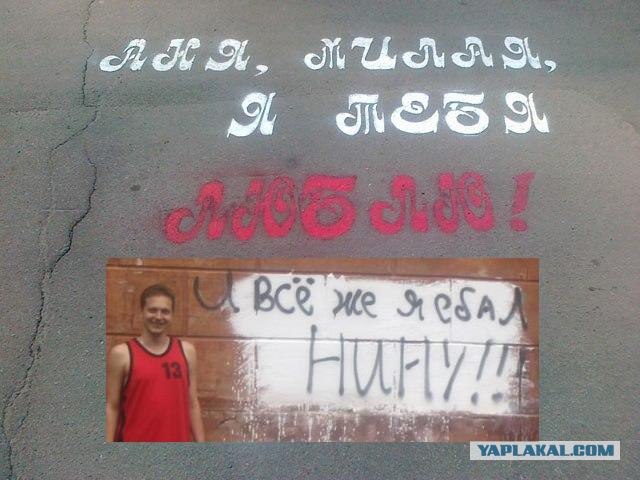 АНЯ, МИЛАЯ,
Я ТЕБЯ
ЛЮБЛЮ!
И ВСЁ же я ебАЛ
НИНУ!!!
13
YAPLAKAL.COM